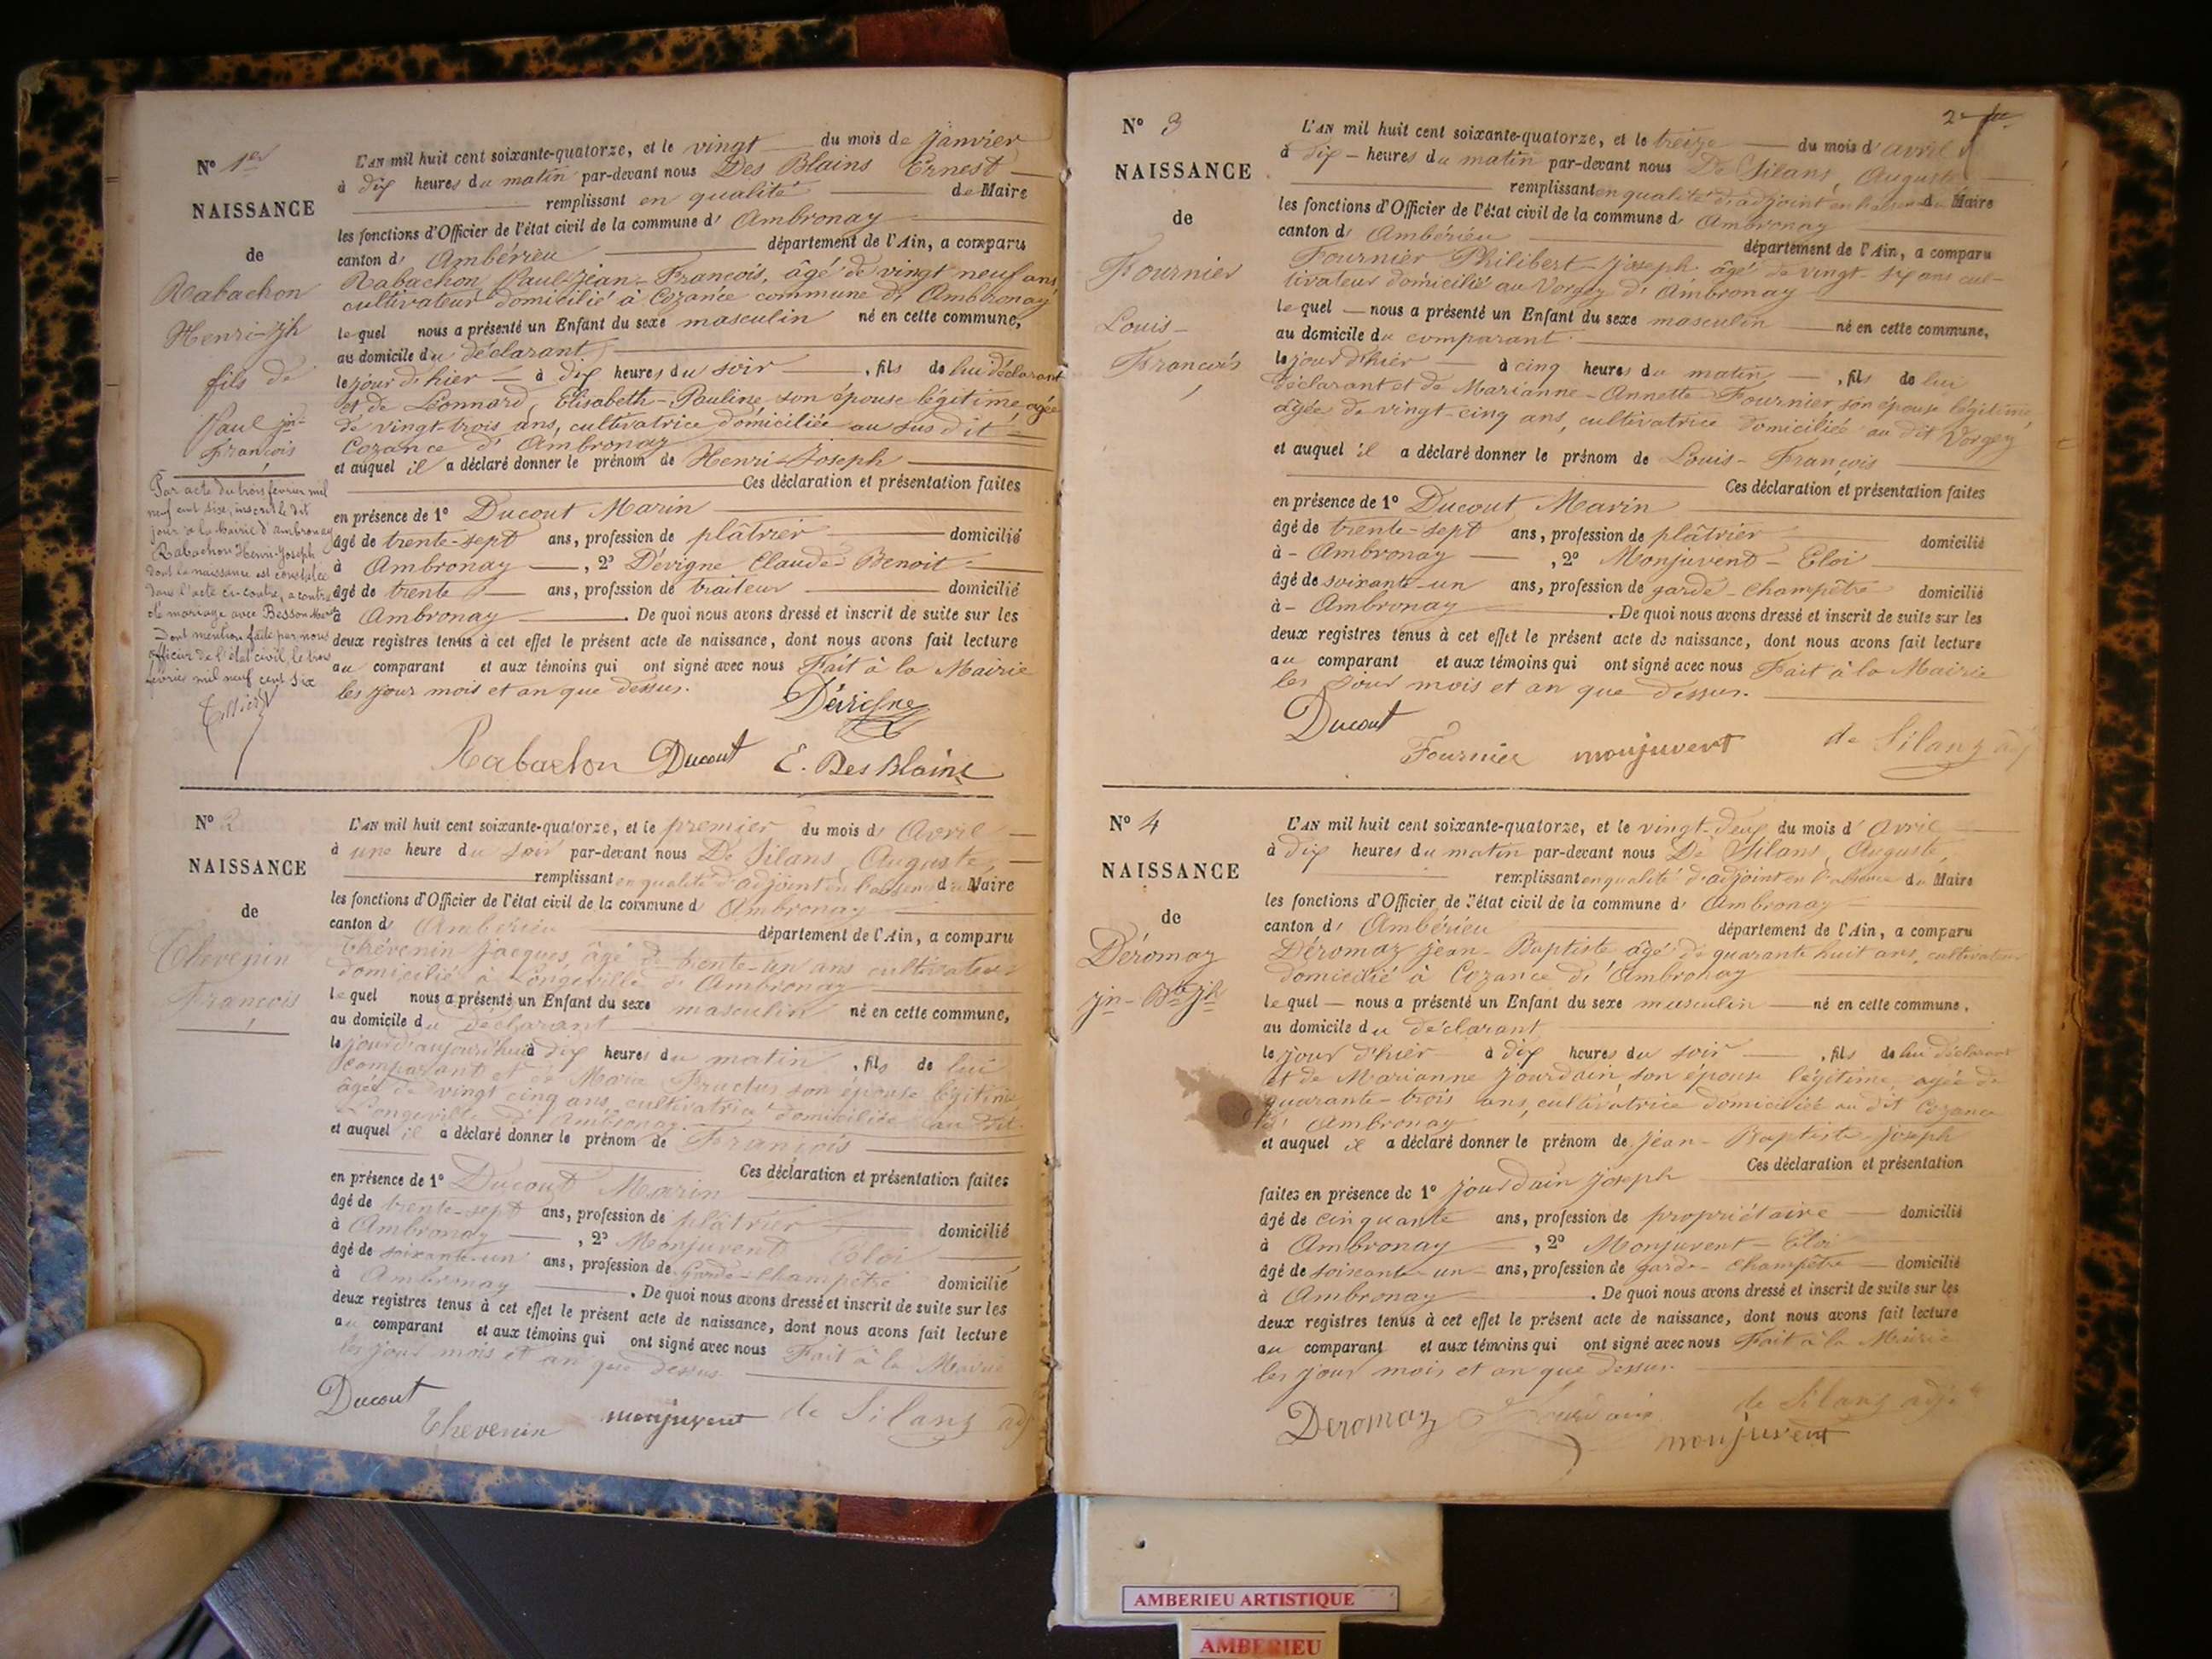 N° 1er
NAISSANCE
de
Rabachon
Henri-Jh
fils de
Paul Jn-
François
Par acte du trois fevrier mil
neuf cent six, inscrit le dit
jour à la Mairie d'Ambronay
Rabachon Henri-Joseph
dont la naissance est constatée
dans l'acte ci-contre, a contracté
mariage avec Besson
Dont mention faite par nous
officier de l'état civil, le trois
fevrier mil neuf cent six
L'AN mil huit cent soixante-quatorze, et le vingt du mois de Janvier
à dix heures du matin par-devant nous Des Blains Ernest
remplissant en qualité de Maire
les fonctions d'Officier de l'état civil de la commune d' Ambronay
canton d' Ambérieu département de l'Ain, a comparu
Rabachon, Paul-Jean-François, âgé de vingt neuf ans,
cultivateur domicilié à Cozance commune d' Ambronay
lequel nous a présenté un Enfant du sexe masculin né en cette commune,
au domicile du déclarant
le jour d'hier à dix heures du soir, fils de lui déclarant
et de Léonnard, Elisabeth-Pauline son épouse légitime agée
de vingt-trois ans, cultivatrice domiciliée au sus dit
Cozance d' Ambronay
et auquel il a déclaré donner le prénom de Henri-Joseph
Ces déclaration et présentation faites
en présence de 1° Ducout Marin
âgé de trente-sept ans, profession de plâtrier domicilié
à Ambronay, 2° Dévigne Claude-Benoit
âgé de trente ans, profession de traiteur domicilié
à Ambronay. De quoi nous avons dressé et inscrit de suite sur les
deux registres tenus à cet effet le présent acte de naissance, dont nous avons fait lecture
au comparant et aux témoins qui ont signé avec nous Fait à la Mairie
les jour mois et an que dessus.
Dévigne
Rabachon Ducout E. Des Blains
N° 2
NAISSANCE
de
Thevenin
François
L'AN mil huit cent soixante-quatorze, et le premier du mois d' Avril
à une heure du soir par-devant nous De Silans, Auguste,
remplissant en qualité d'adjoint en l'absence du Maire
les fonctions d'Officier de l'état civil de la commune d' Ambronay
canton d' Ambérieu département de l'Ain, a comparu
Thévenin Jacques, âgé de trente-un ans cultivateur
domicilié à Longeville d' Ambronay
lequel nous a présenté un Enfant du sexe masculin né en cette commune,
au domicile du déclarant
le jour d'aujourd'hui à dix heures du matin, fils de lui
comparant et de Marie Fructus son épouse légitime
âgée de vingt cinq ans, cultivatrice domiciliée au dit
Longeville d' Ambronay.
et auquel il a déclaré donner le prénom de François
Ces déclaration et présentation faites
en présence de 1° Ducout Marin
âgé de trente-sept ans, profession de plâtrier domicilié
à Ambronay, 2° Monjuvent Eloi
âgé de soixante-un ans, profession de garde-champêtre domicilié
à Ambronay. De quoi nous avons dressé et inscrit de suite sur les
deux registres tenus à cet effet le présent acte de naissance, dont nous avons fait lecture
au comparant et aux témoins qui ont signé avec nous Fait à la Mairie
les jour mois et an que dessus.
Ducout
Thevenin monjuvent de Silans adj
2e
N° 3
NAISSANCE
de
Fournier
Louis-
François
L'AN mil huit cent soixante-quatorze, et le treize du mois d' avril
à dix-heures du matin par-devant nous De Silans, Auguste
remplissant en qualité d'adjoint en l'absence du Maire
les fonctions d'Officier de l'état civil de la commune d' Ambronay
canton d' Ambérieu département de l'Ain, a comparu
Fournier Philibert-Joseph âgé de vingt-six ans cul-
tivateur domicilié au Vorgey d' Ambronay
lequel nous a présenté un Enfant du sexe masculin né en cette commune,
au domicile du comparant.
le jour d'hier à cinq heures du matin, fils de lui
déclarant et de Marianne-Annette Fournier son épouse légitime,
âgée de vingt-cinq ans, cultivatrice domiciliée au dit Vorgey
et auquel il a déclaré donner le prénom de Louis-François
Ces déclaration et présentation faites
en présence de 1° Ducout, Marin
âgé de trente-sept ans, profession de plâtrier domicilié
à - Ambronay, 2° Monjuvent-Eloi
âgé de soixante-un ans, profession de garde-champêtre domicilié
à - Ambronay. De quoi nous avons dressé et inscrit de suite sur les
deux registres tenus à cet effet le présent acte de naissance, dont nous avons fait lecture
au comparant et aux témoins qui ont signé avec nous Fait à la Mairie
les jour mois et an que dessus.
Ducout
Fournier monjuvent de Silans adj
N° 4
NAISSANCE
de
Déromaz
Jn-Bte Jh
L'AN mil huit cent soixante-quatorze, et le vingt-deux du mois d' Avril
à dix heures du matin par-devant nous De Silans, Auguste,
remplissant en qualité d'adjoint en l'absence du Maire
les fonctions d'Officier de l'état civil de la commune d' Ambronay
canton d' Ambérieu département de l'Ain, a comparu
Déromaz Jean-Baptiste âgé de quarante huit ans, cultivateur
domicilié à Cozance d' Ambronay
lequel nous a présenté un Enfant du sexe masculin né en cette commune,
au domicile du déclarant
le jour d'hier à dix heures du soir, fils de lui déclarant
et de Marianne Jourdain, son épouse légitime, agée de
quarante-trois ans, cultivatrice domiciliée au dit Cozance
d' Ambronay
et auquel il a déclaré donner le prénom de Jean-Baptiste Joseph
Ces déclaration et présentation
faites en présence de 1° Jourdain Joseph
âgé de cinquante ans, profession de propriétaire domicilié
à Ambronay, 2° Monjuvent-Eloi
âgé de soixante-un ans, profession de garde-champêtre domicilié
à Ambronay. De quoi nous avons dressé et inscrit de suite sur les
deux registres tenus à cet effet le présent acte de naissance, dont nous avons fait lecture
au comparant et aux témoins qui ont signé avec nous Fait à la Mairie
les jour mois et an que dessus.
Deromaz Jourdain de Silans adj
monjuvent
AMBERIEU ARTISTIQUE
AMBERIEU